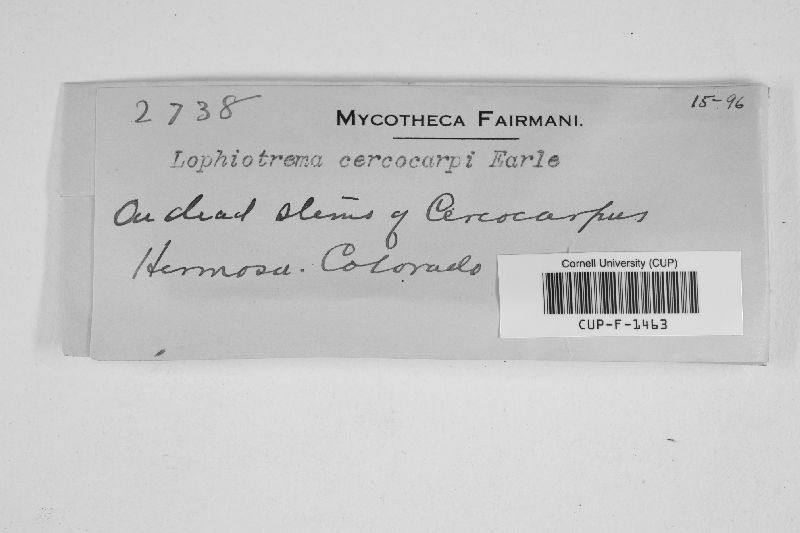 2738
15-96
MYCOTHECA FAIRMANI.
Lophiotrema cercocarpi Earle
On dead stems of Cercocarpus
Hermosa. Colorado
Cornell University (CUP)
CUP-F-1463